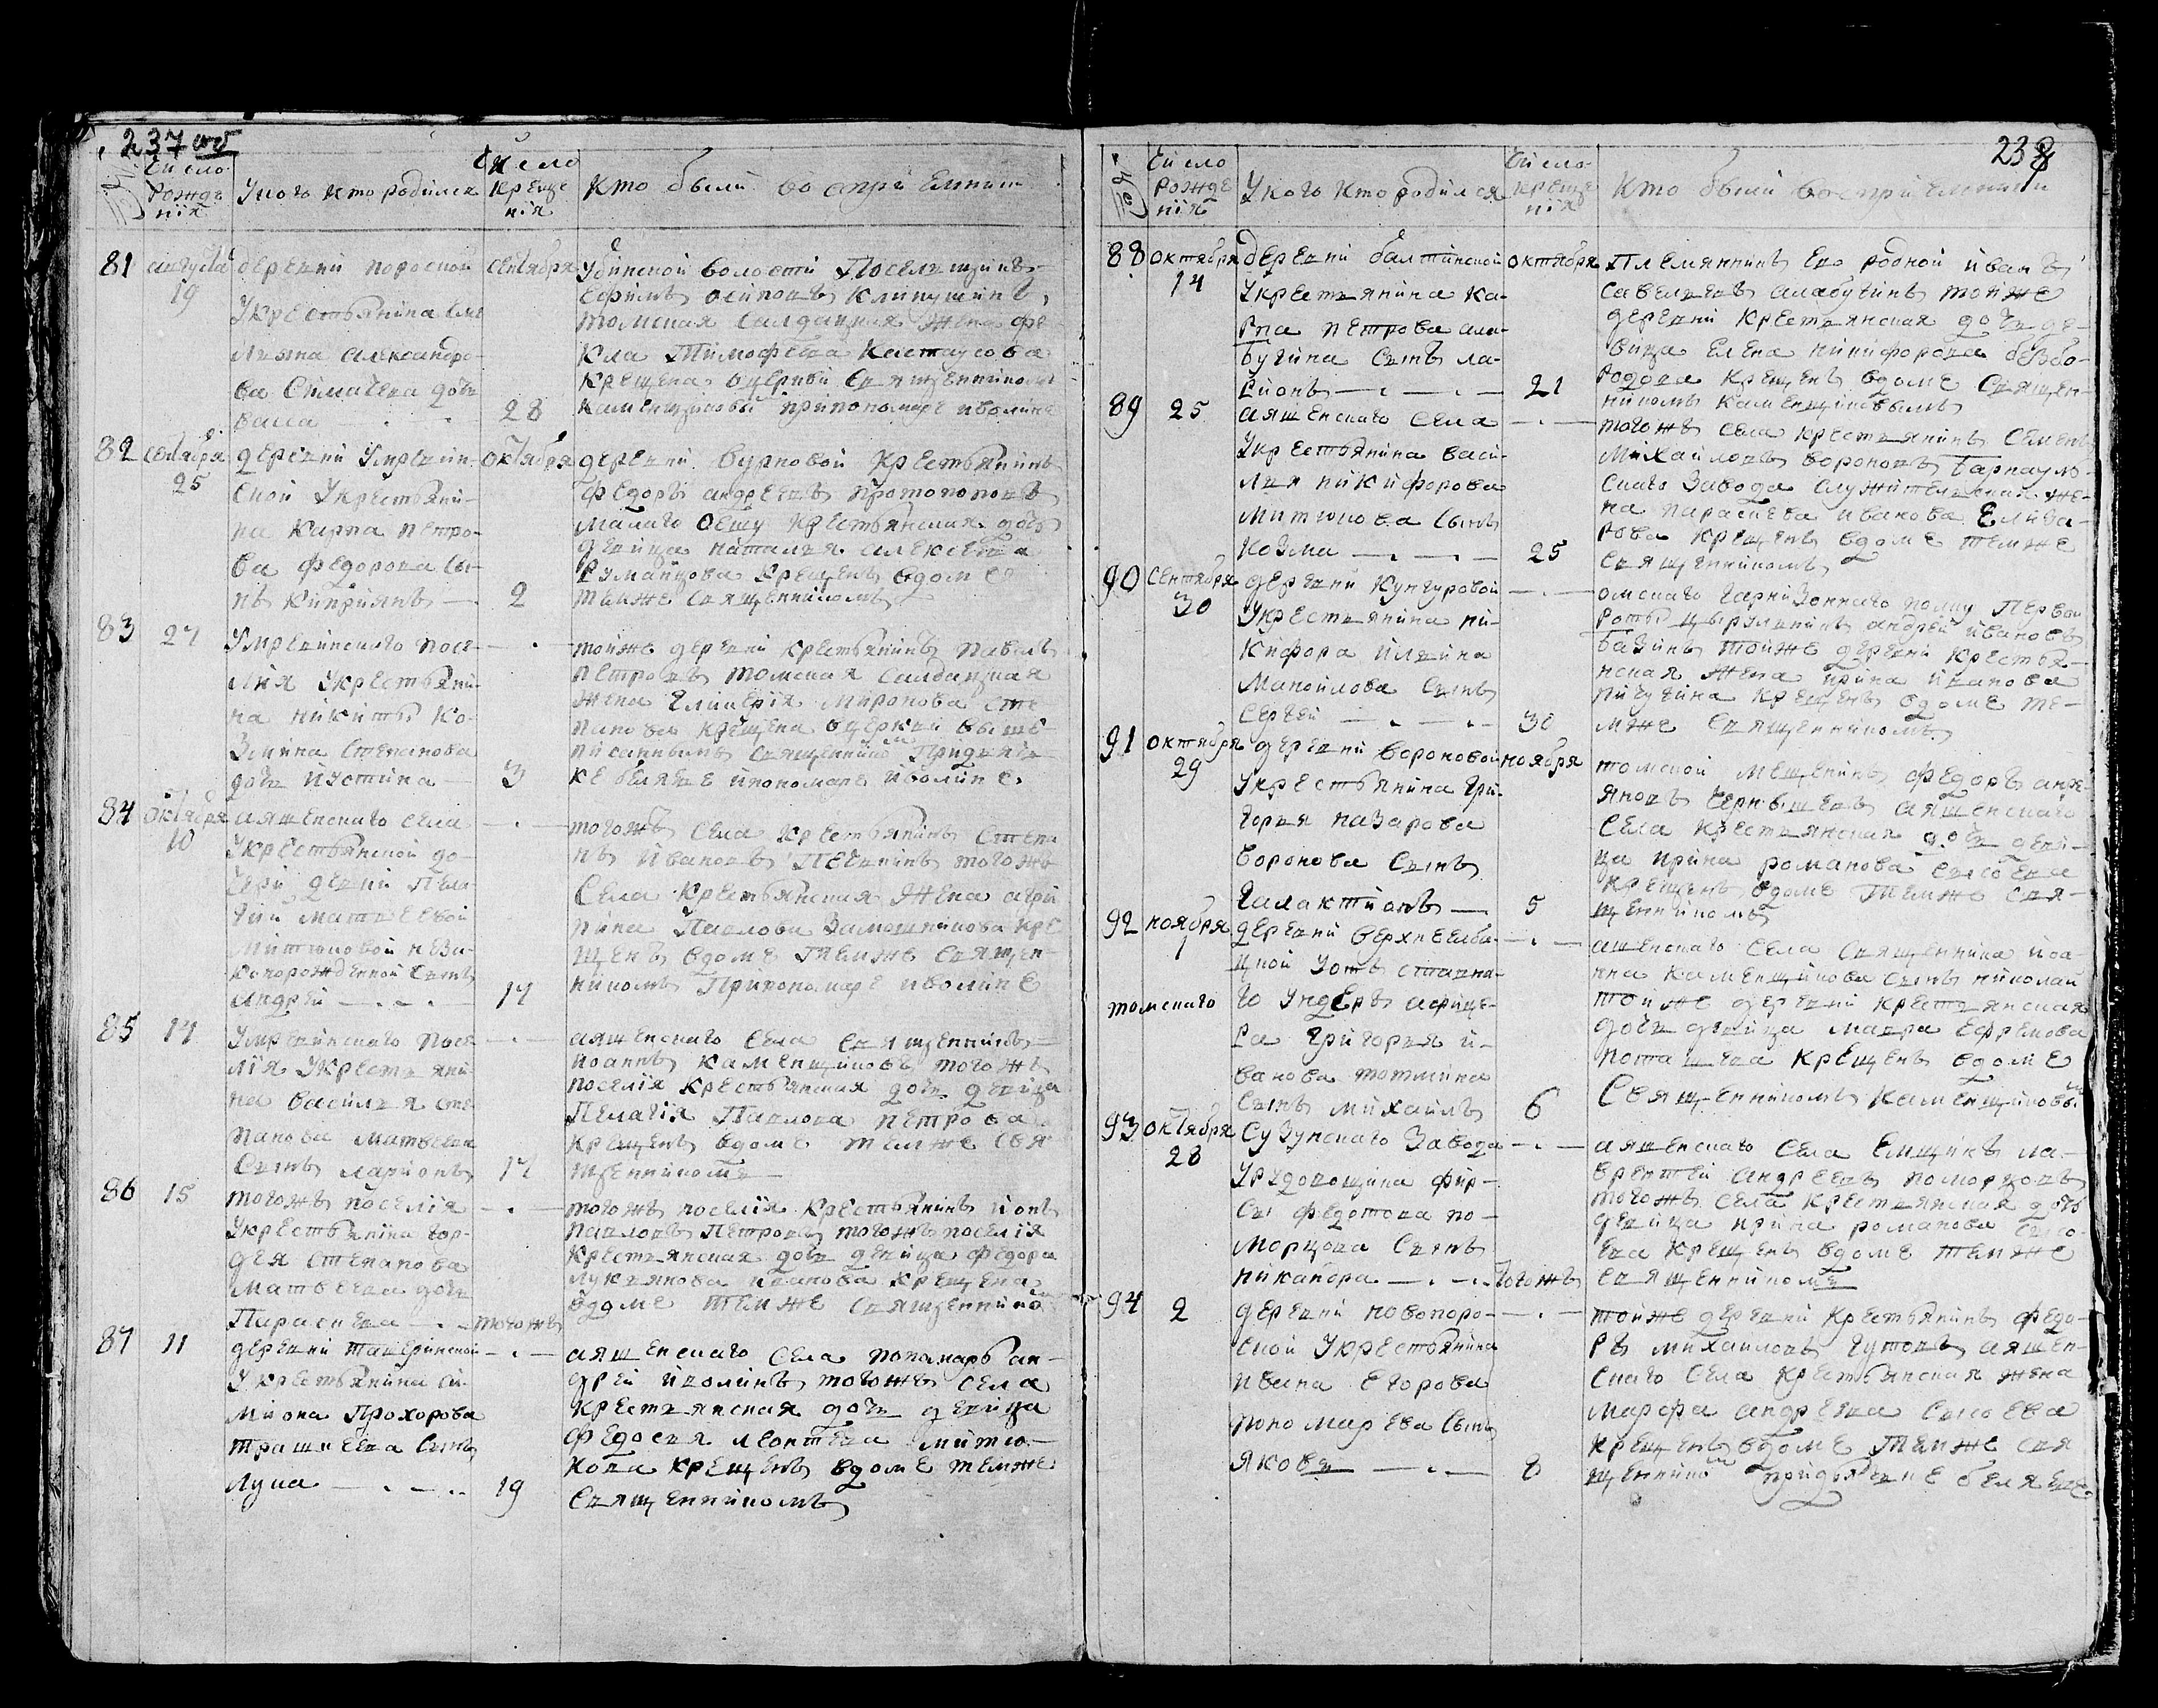 237 об
Число рожде нія
У кого кто родился
Число креще нія
Кто были воспріемники
81 августа 19
деревни поросной
У крестьянина Еме
лияна александро
ва Симачева дочь
васса
сентября 28
убинской волости Поселщикъ
Ефимъ осиповъ
томская салдацкая жена фе
кла Тимофеева
крещена в церкви священникомъ
каменщиковы при пономаре иволине
82 сентября 25
деревни Умревин
ской У крестьяни
на карпа петро
ва федорова сы
нъ киприянъ
октября 2
деревни бурковой крестьянинъ
федоръ андреевъ протопоповъ
малаго оешу крестьянская дочь
девица наталья алексеева
румянцова крещенъ в доме
темже священникомъ
83 27
Умревинского посе
лия У крестьяни
на никиты ко
змина степанова
дочь иустина
3
тойже деревни крестьянинъ павелъ
петровъ томская салдацкая
жена гликерія миронова сте
панова крещена в церкви выше
писаннымъ священником При дьяч
ке беляеве и пономаре иволине
84 октября 10
аяшенского села
У крестьянской до
чери девки Пела
гии матвеевой
митюковой неза
конорожденной сынъ
Андрей
17
тогожъ села крестьянинъ Степа
нъ ивановъ Печкинъ тогожъ
села крестьянская жена агри
пина Павлова Замошникова кре
щенъ в доме темже священ
никомъ При пономаре иволине
85 14
Умревинского посе
лія У крестьяни
на василья сте
панова матвеева
сынъ ларионъ
17
аяшенского села священникъ
иоаннъ каменщиковъ тогожъ
поселія крестьянская дочь девица
Пелагія Павлова петрова
крещенъ в доме темже свя
щенникомъ
86 15
тогожъ поселія
У крестьянина гор
дея степанова
матвеева дочь
Параскева
тогожъ
тогожъ поселія крестьянинъ іовъ
павловъ Петровъ тогожъ поселія
крестьянская дочь девица федора
лукьянова иванова крещена
в доме темже священнико
87 11
деревни ташеринской
У крестьянина си
миона Прохорова
трашкеева сынъ
лука
19
аяшенского села пономарь ан
дрей иволинъ тогожъ села
крестьянская дочь девица
федосья леонтева митю
кова крещенъ в доме темже
священникомъ
238
Число рожде нія
У кого кто родился
Число креще нія
Кто были воспріемники
88 октября 14
деревни балтинской
У крестьянина ка
рпа петрова ала
бугина сынъ ла
рионъ
октября 21
Племянникъ ево родной иванъ
савельевъ алабугинъ тойже
деревни крестьянская дочь де
вица елена никифорова безбо
родова крещенъ в доме священ
никомъ каменщиковымъ
89 25
аяшенского села
У крестьянина васи
лья никифорова
митюкова сынъ
козма
25
тогожъ села крестьянинъ семенъ
михайловъ вороновъ барнауль
скаго завода служительская же
на параскева иванова Елиза
рова крещенъ в доме темже
священникомъ
90 сентября 30
деревни кунгуровой
У крестьянина ни
кифора ильина
манойлова сынъ
сергей
30
омского гарнизонного полку первой
роты цырульникъ андрей ивановъ
базинъ тойже деревни крестья
нская жена ирина иванова
пичугина крещенъ в доме те
мже священникомъ
91 октября 29
деревни вороновой
У крестьянина гри
горья назарова
воронова сынъ
галактионъ
ноября 5
томской мещенинъ федоръ андре
яновъ чернышевъ аяшенского
села крестьянская дочь деви
ца ирина романова сысоева
крещенъ в доме темже свя
щенникомъ
92 ноября 1
деревни верхнеелба
цкой У отъ ставна
томского
го ундеръ афице
ра григорья и
ванова тотмина
сынъ михаилъ
6
ашенского села священника иоа
нна каменщикова сынъ николай
тойже деревни крестьянская
дочь девица мавра ефремова
поташева крещенъ в доме
священникомъ каменщиковы
93 октября 28
сузунского завода
У рудовощика фир
са федотова по
морцова сынъ
никанора
тогожъ
аяшенского села ямщикъ ла
врентей андреевъ поморцовъ
тогожъ села крестьянская дочь
девица ирина романова сысо
ева крещенъ в доме темже
священникомъ
94 2
деревни новопоро
ской У крестьянина
ивана егорова
пономарева сынъ
яковъ
8
тойже деревни крестьянинъ федо
ръ михаиловъ гутовъ аяшен
ского села крестьянская жена
марфа андреева сысоева
крещенъ в доме темже свя
щеннико при дьячке беляеве